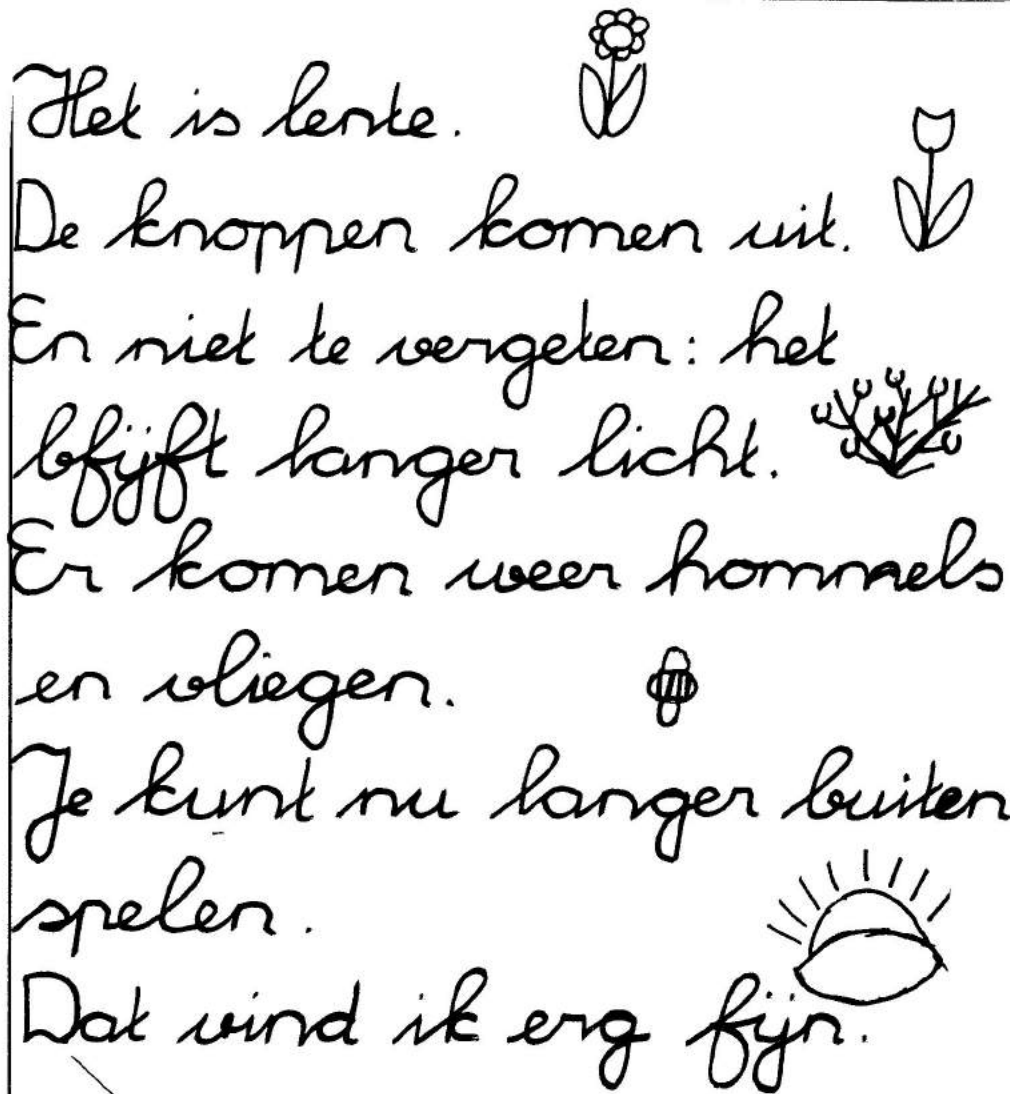 Het is lente.
De knoppen komen uit.
En niet te vergeten: het
bfijft langer licht.
Er komen weer hommels
en vliegen.
Je kunt nu langer buiten
spelen.
Dat vind ik erg fijn.